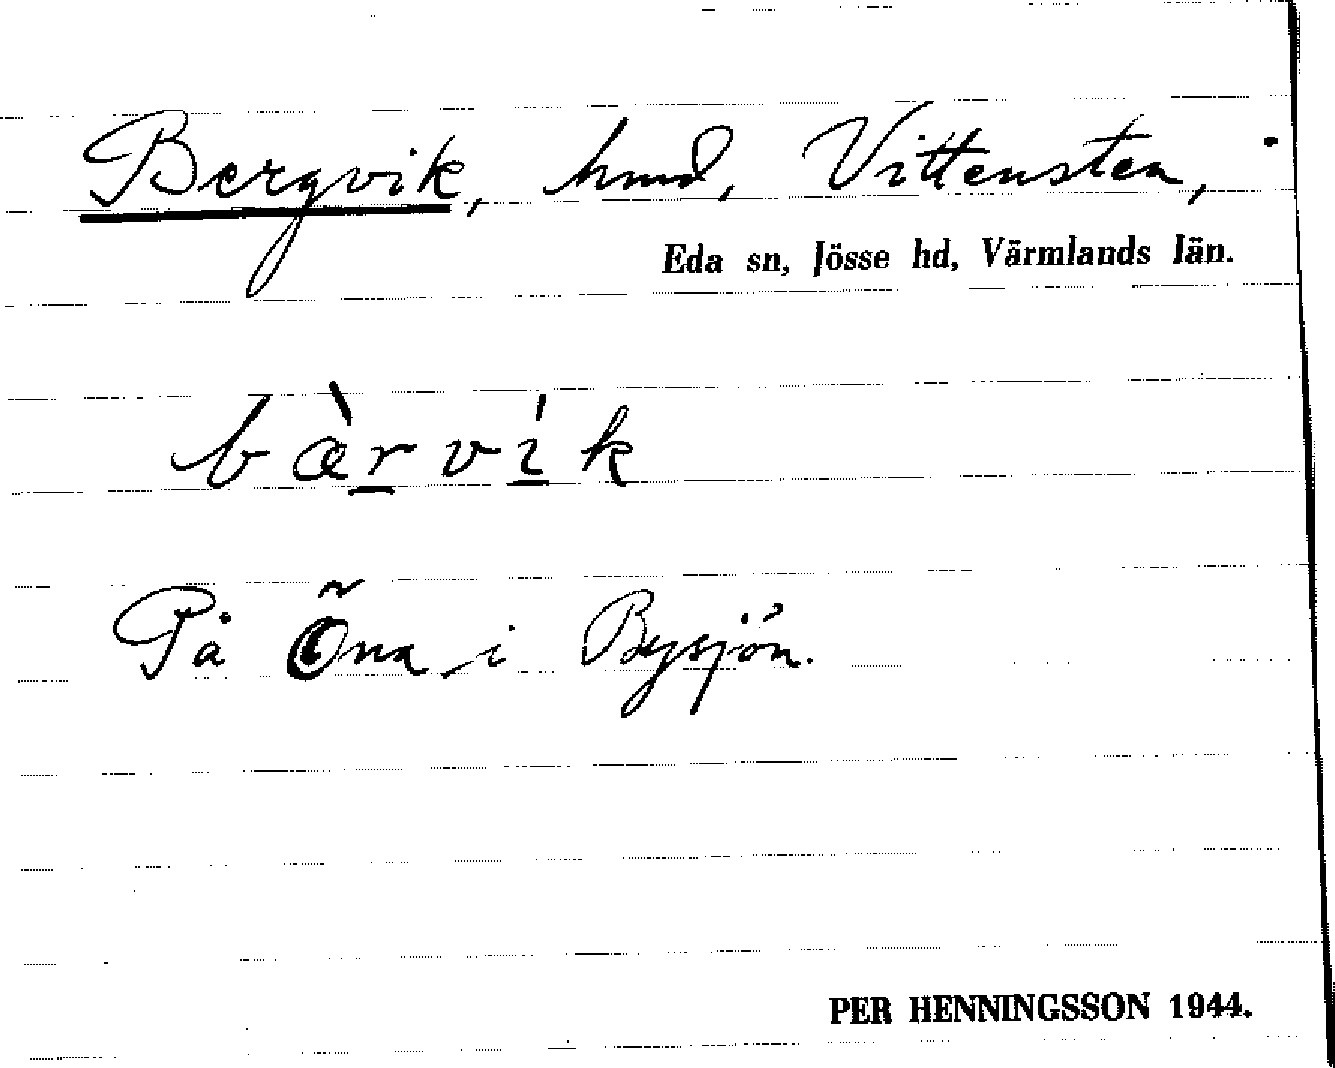 Bergvik, hmd, Vittensten,
Eda sn, Jösse hd, Värmlands län.
bàrvík
På Öna i Bysjön.
PER HENNINGSSON 1944.